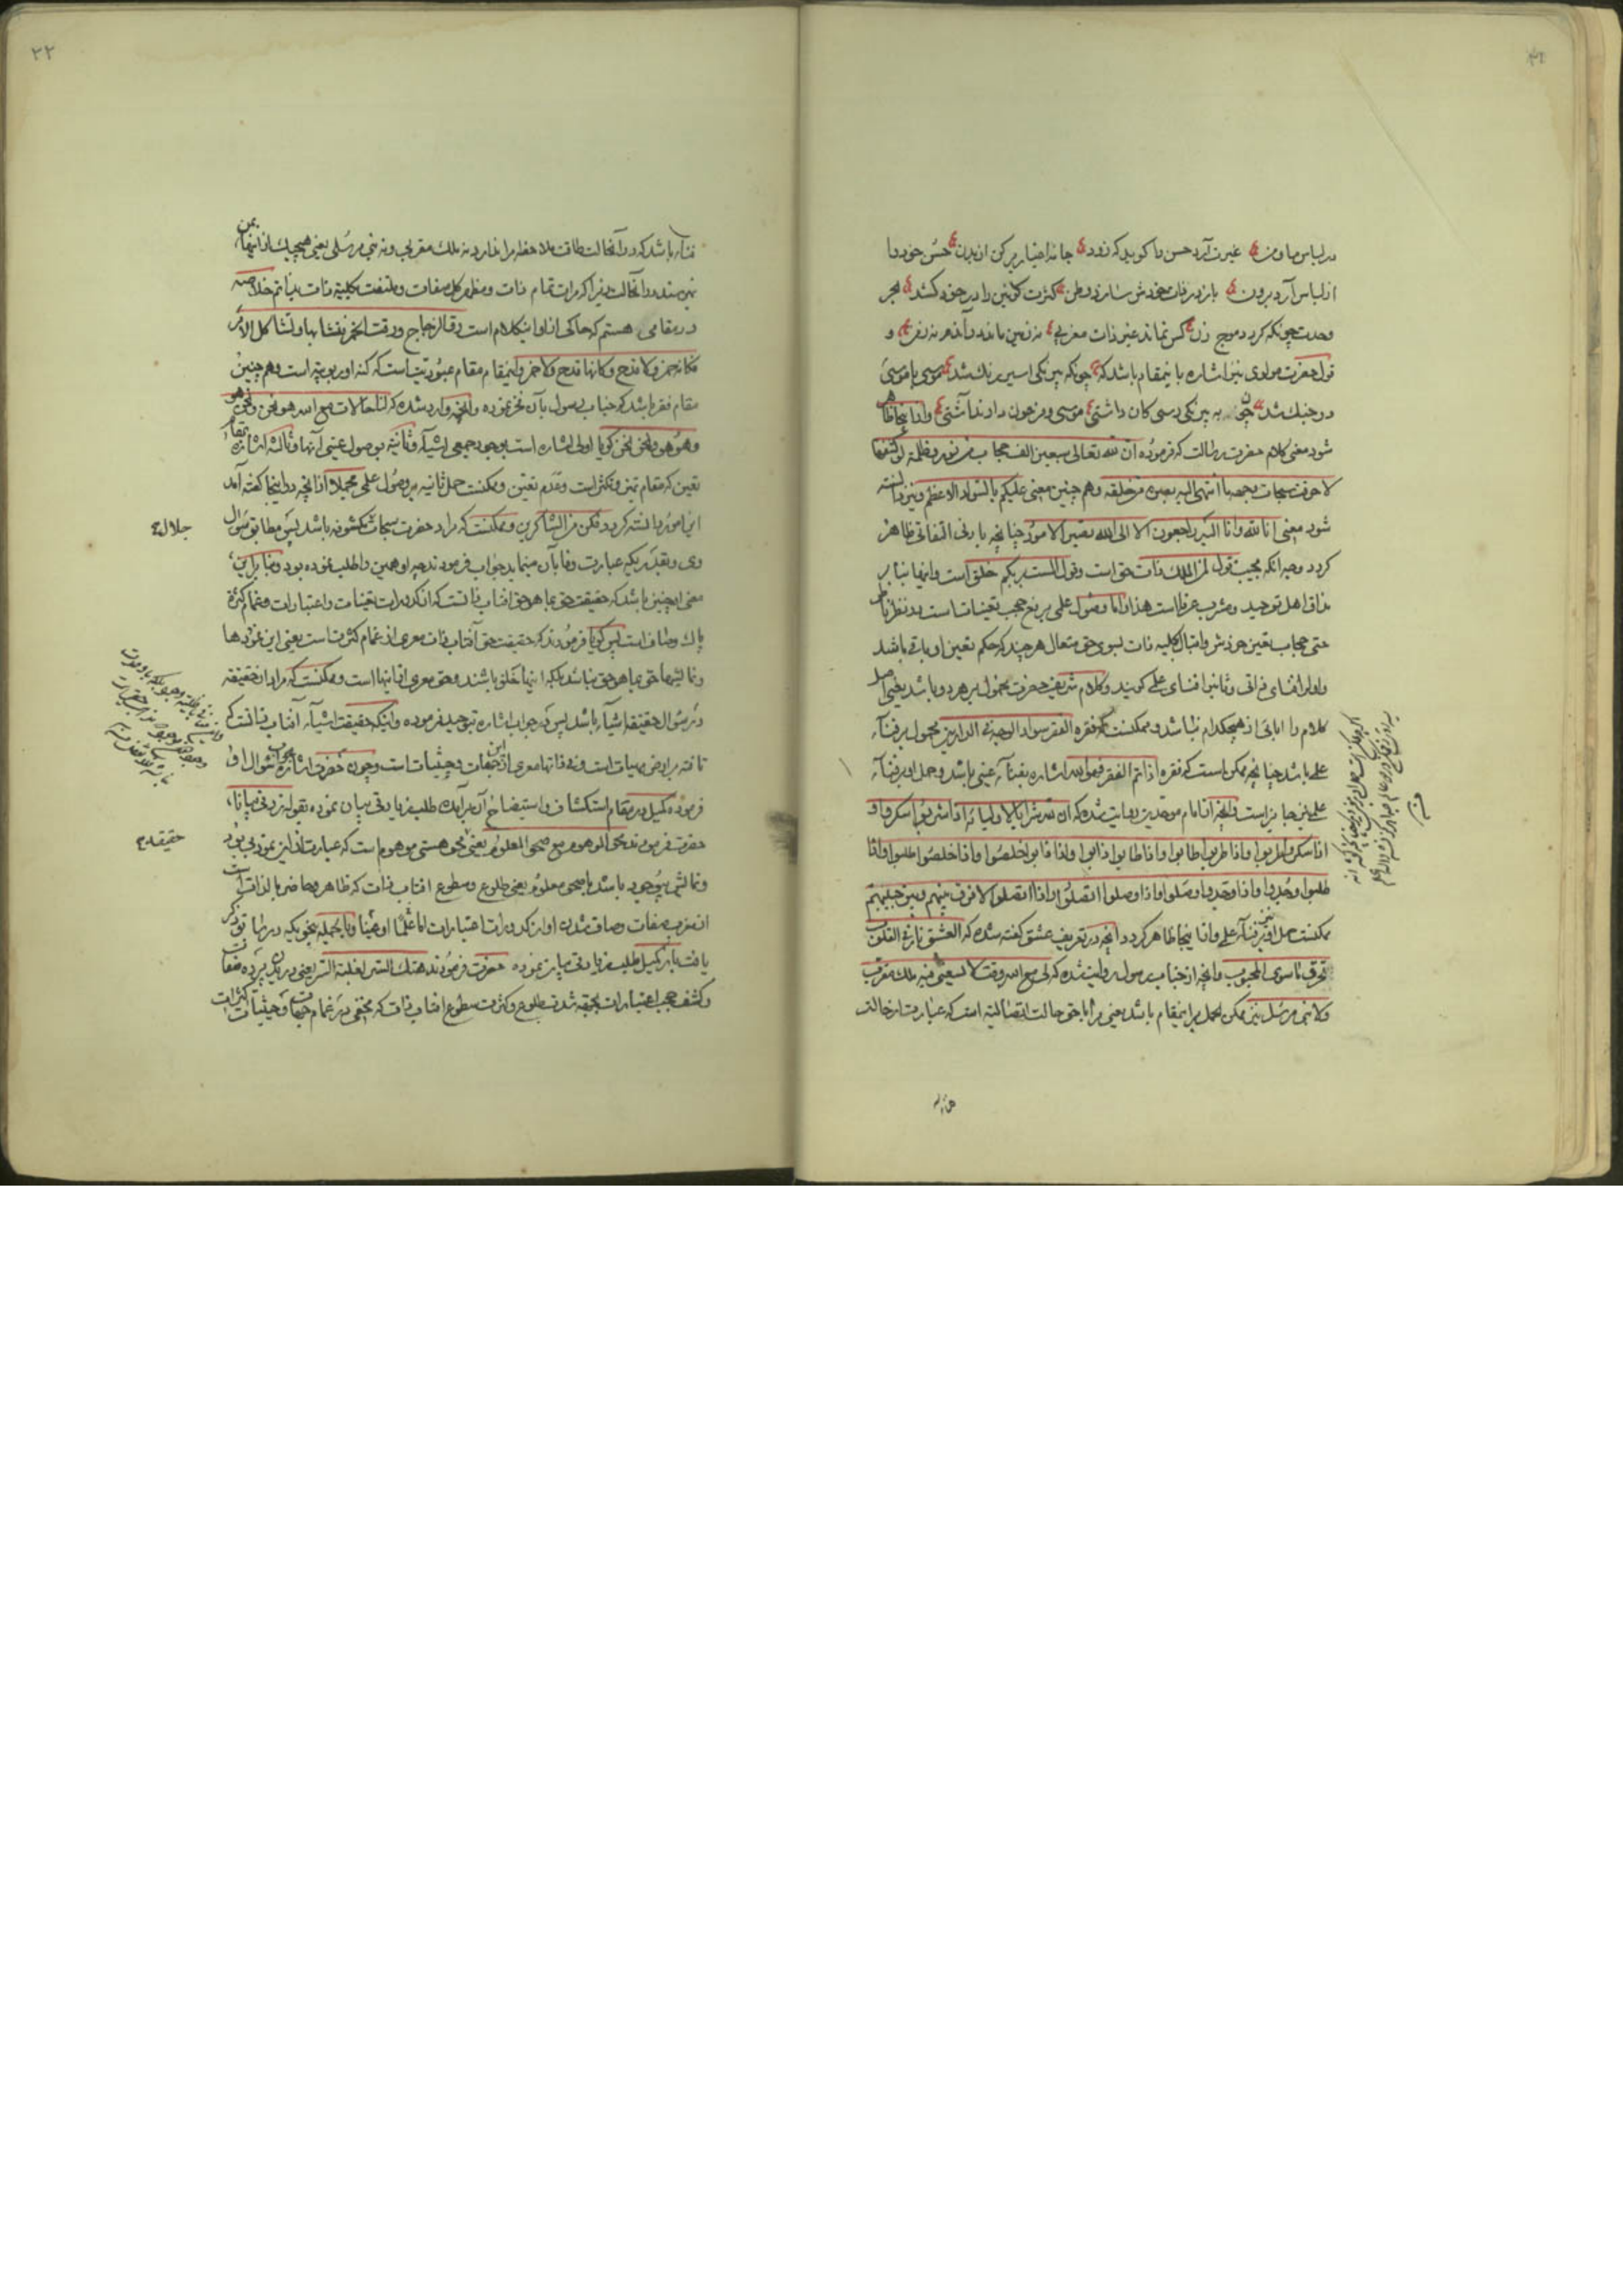 در لباس ما و من غیرت آرد حسن را گوید که زود جامه اغیار بر کن از بدن حسن خود را
از لباس آرد برون باز در ذات خودش سازد وطن کثرت کونین را در خود کشد بحر
وحدت چونکه گردد موج زن کس نماند غیر ذات مغربی نه زمین ماند در آندم نه زمن و
قول حضرت مولوی نیز اشاره باینمقام باشد که چونکه بیرنکی اسیر رنك شد موسی با موسی
در جنك شد چون به بیرنکی رسی کان داشتی موسی و فرعون دارند آشتی و از اینجا ظاهر
شود معنی کلام حضرت رسالت که فرموده ان لله تعالی سبعین الف حجاب من نور و ظلمة لو کشفها
لاحرقت سبحات وجهه ما انتهی الیه بصره من خلقه وهم چنین معنی علیکم بالسواد الاعظم و نیز دانسته
شود معنی انا لله وانا الیه راجعون الا الی الله تصیر الامور چنانچه بادنی التفاتی ظاهر
کردد وجه انکه مجیب قول لمن الملك ذات حق است وقول الست بربکم خلق است و اینها بنا بر
مذاق اهل توحید و مشرب عرفا است هذا و اما وصول علمی برفع حجب تعینات است در نظر
حتی حجاب تعین خودش و اقبال بکلیه ذات بسوی حق متعال هر چند که حکم تعین او باقی باشد
واول را فنای ذاتی و ثانیرا فنای علمی کویند و کلام شریف حضرت محمول بر هر دو باشد یعنی اصل
کلام را ابائی از هیچکدام نباشد و ممکنست که فقره الفقر سواد الوجه فی الدارین محمول بر فناء
علمی باشد چنانچه ممکن است که فقره اذا تم الفقر فهو الله اشاره بفناء عینی باشد و حمل او بر فناء
علمی نیز جایز است و انچه از امام موحدین روایت شده که ان لله شرابا لاولیائه اذا شربوا سکروا و
اذا سکروا طربوا و اذا طربوا طابوا و اذا طابوا ذابوا و اذا ذابوا خلصوا و اذا خلصوا طلبوا و اذا
طلبوا وجدوا و اذا وجدوا وصلوا و اذا وصلوا اتصلوا و اذا اتصلوا لا فرق بینهم و بین حبیبهم
ممکنست حمل او نیز بر فناء علمی و از اینجا ظاهر کردد انچه در تعریف عشق کفته شده که العشق نار فی القلوب
تحرق ما سوی المحبوب و انچه از جناب رسول روایت شده که لی مع الله وقت لا یسعنی فیه ملك مقرب
ولا نبی مرسل نیز ممکن الحمل بر اینمقام باشد یعنی مرا با حق حالت اتصالیه است که عبارت از حالت
فناء
۲۲
فناء باشد که در آنحالت طاقت ملاحظه مرا ندارد نه ملك مقربی و نه نبی مرسلی یعنی هیچیك از اینها بمن
نمیرسند در آنحالت زیرا که مرات تمام ذات و مظهر کل صفات و ملتفت بکلیه ذات بذاتم خلاصه
در مقامی هستم که حاکی از او اینکلام است رق الزجاج ورقت الخمر فتشابها وتشاکل الامر
فکانه خمر ولا قدح وکانها قدح ولا خمر و اینمقام مقام عبودیتست که کنه او ربوبیة است وهم چنین
مقام فقر باشد که جناب رسول بآن فخر نموده و انچه وارد شده که لنا حالات مع الله هو نحن و نحن هو
وهو هو ونحن نحن کویا اولی اشاره است بوجود جمعی اشیآء و ثانیة بوصول عینی آنها و ثالثه اشاره بمقام
تعین که مقام تمیز و تکثر است و عدم تعین و ممکنست حمل ثانیه بر وصول علمی مجملا از انچه در اینجا کفته آمد
این امور دانسته کردد فکن من الشاکرین و ممکنست که مراد حضرت سبحات مکشوفه باشد پس مطابق سؤال
جلال ع
وی و بقدر یکیه عبارت وفا بآن مینماید جواب فرمودند چه او همین را طلب نموده بود و بنا براین
معنی اینچنین باشد که حقیقت حق بما هو حق افتاب ذاتست که از کدورات تعینات و اعتبارات و غمام کثرة
پاك و صاف است پس کویا فرمودند که حقیقت حق آفتاب ذات معری از غمام کثرتست یعنی این نمودها
و نمایشها حق بما هو حق نباشد بلکه اینها خلق باشند و حق معری از اینها است و ممکنست که مراد از حقیقة
در سؤال حقیقة اشیآء باشد پس در جواب اشاره بتوحید فرموده و اینکه حقیقت اشیآء آفتاب ذاتست که
تافته بر اراضی مهیات است و فی ذاتها معری از این جهات و حیثیات است و چون حضرت اشاره بجواب سؤال او
فرموده کمیل در مقام استکشاف و استیضاح آن بر آمدد طلب زیادتی بیان نموده بقوله زدنی بیانا
حضرت فرمودند محو الموهوم مع صحو المعلوم یعنی محو هستی موهوم است که عبارت از این نمود بی بود
حقیقة
و نمایش بیوجود باشد با صحو معلوم یعنی طلوع و سطوع افتاب ذات که ظاهر و حاضر بالذاتست
از مغرب صفات و صاف شدن او از کدورات اعتبارات اما علما او عینا و بالجمله بنحویکه در سابق ذکر
یافت باز کمیل طلب زیادتی بیان نموده حضرت فرمودند هتك الستر لغلبة السر یعنی دریدن پرده صفات
و کشف حجب اعتبارات بجهة شدت طلوع و کثرت سطوع افتاب ذات که مختفی در غمام جهات و حیثیات کثرات